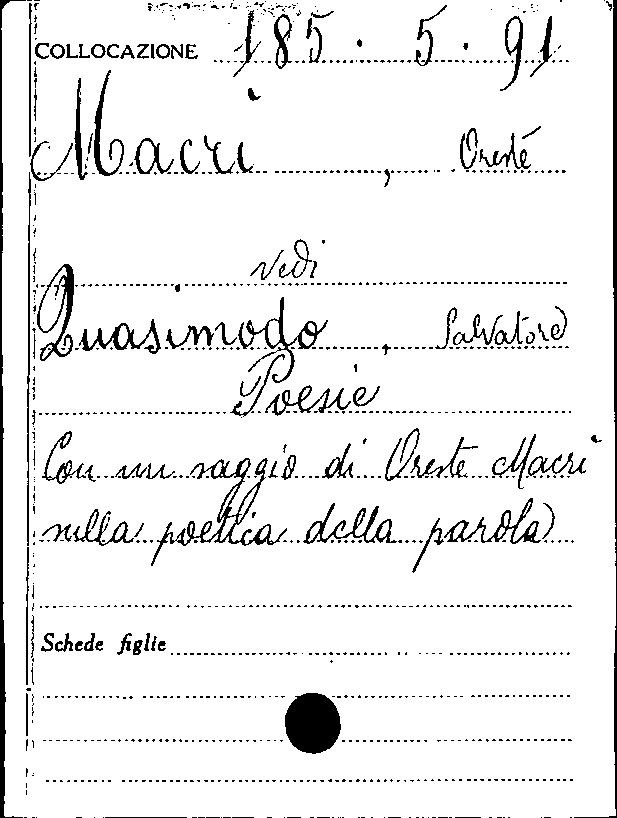 COLLOCAZIONE 185. 5. 91
Macrì, Oreste
vedi
Quasimodo, Salvatore
Poesie
Con un saggio di Oreste Macrì
sulla poetica della parola
Schede figlie